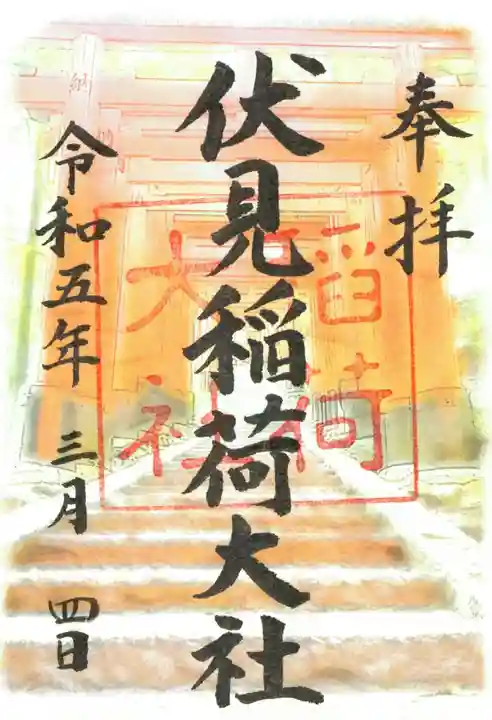 奉拝
伏見稲荷大社
令和五年三月四日
稲荷
大社
納